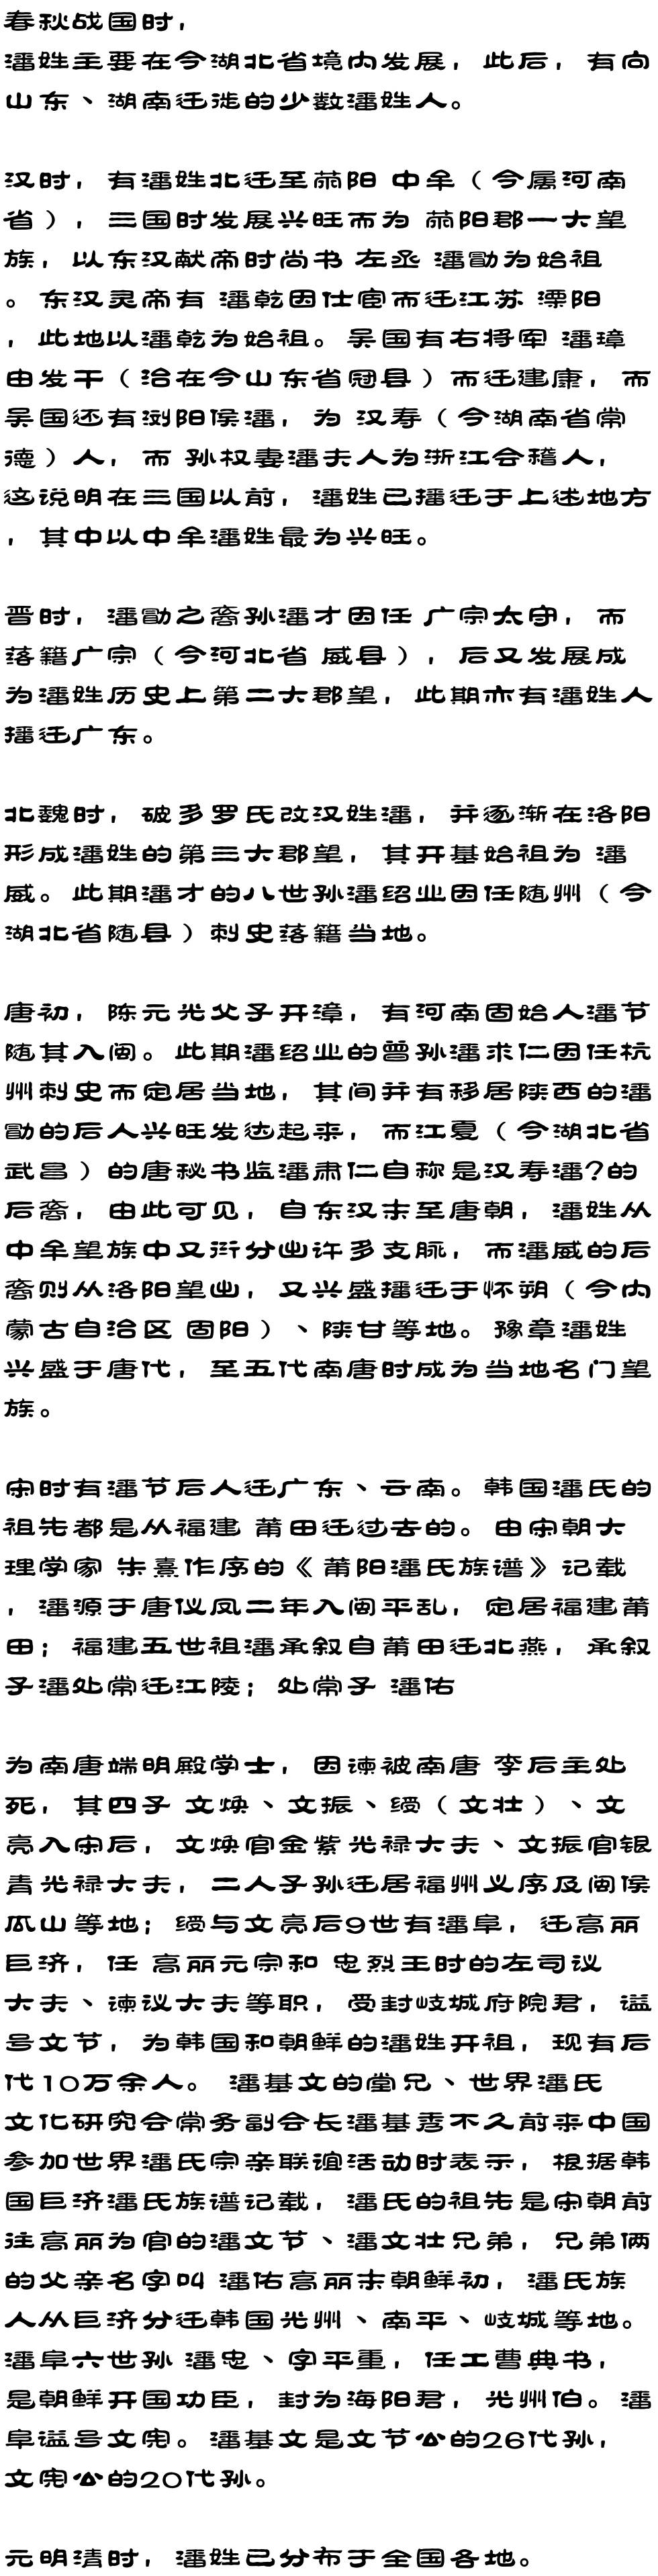 春秋战国时，
潘姓主要在今湖北省境内发展，此后，有向
山东、湖南迁徙的少数潘姓人。
汉时，有潘姓北迁至荥阳 中牟（今属河南
省），三国时发展兴旺而为 荥阳郡一大望
族，以东汉献帝时尚书 左丞 潘勖为始祖
。东汉灵帝有 潘乾因仕官而迁江苏 溧阳
，此地以潘乾为始祖。吴国有右将军 潘璋
由发干（治在今山东省冠县）而迁建康，而
吴国还有浏阳侯潘，为 汉寿（今湖南省常
德）人，而 孙权妻潘夫人为浙江会稽人，
这说明在三国以前，潘姓已播迁于上述地方
，其中以中牟潘姓最为兴旺。
晋时，潘勖之裔孙潘才因任 广宗太守，而
落籍广宗（今河北省 威县），后又发展成
为潘姓历史上第二大郡望，此期亦有潘姓人
播迁广东。
北魏时，破多罗氏改汉姓潘，并逐渐在洛阳
形成潘姓的第三大郡望，其开基始祖为 潘
威。此期潘才的八世孙潘绍业因任随州（今
湖北省随县）刺史落籍当地。
唐初，陈元光父子开漳，有河南固始人潘节
随其入闽。此期潘绍业的曾孙潘求仁因任杭
州刺史而定居当地，其间并有移居陕西的潘
勖的后人兴旺发达起来，而江夏（今湖北省
武昌）的唐秘书监潘肃仁自称是汉寿潘?的
后裔，由此可见，自东汉末至唐朝，潘姓从
中牟望族中又衍分出许多支脉，而潘威的后
裔则从洛阳望出，又兴盛播迁于怀朔（今内
蒙古自治区 固阳）、陕甘等地。豫章潘姓
兴盛于唐代，至五代南唐时成为当地名门望
族。
宋时有潘节后人迁广东、云南。韩国潘氏的
祖先都是从福建 莆田迁过去的。由宋朝大
理学家 朱熹作序的《 莆阳潘氏族谱》记载
，潘源于唐仪凤二年入闽平乱，定居福建莆
田；福建五世祖潘承叙自莆田迁北燕，承叙
子潘处常迁江陵；处常子 潘佑
为南唐端明殿学士，因谏被南唐 李后主处
死，其四子 文焕、文振、绶（文壮）、文
亮入宋后，文焕官金紫光禄大夫、文振官银
青光禄大夫，二人子孙迁居福州义序及闽侯
瓜山等地；绶与文亮后9世有潘阜，迁高丽
巨济，任 高丽元宗和 忠烈王时的左司议
大夫、谏议大夫等职，受封岐城府院君，谥
号文节，为韩国和朝鲜的潘姓开祖，现有后
代10万余人。 潘基文的堂兄、世界潘氏
文化研究会常务副会长潘基秀不久前来中国
参加世界潘氏宗亲联谊活动时表示，根据韩
国巨济潘氏族谱记载，潘氏的祖先是宋朝前
往高丽为官的潘文节、潘文壮兄弟，兄弟俩
的父亲名字叫 潘佑高丽末朝鲜初，潘氏族
人从巨济分迁韩国光州、南平、岐城等地。
潘阜六世孙 潘忠、字平重，任工曹典书，
是朝鲜开国功臣，封为海阳君，光州伯。潘
阜谥号文宪。潘基文是文节公的26代孙，
文宪公的20代孙。
元明清时，潘姓已分布于全国各地。